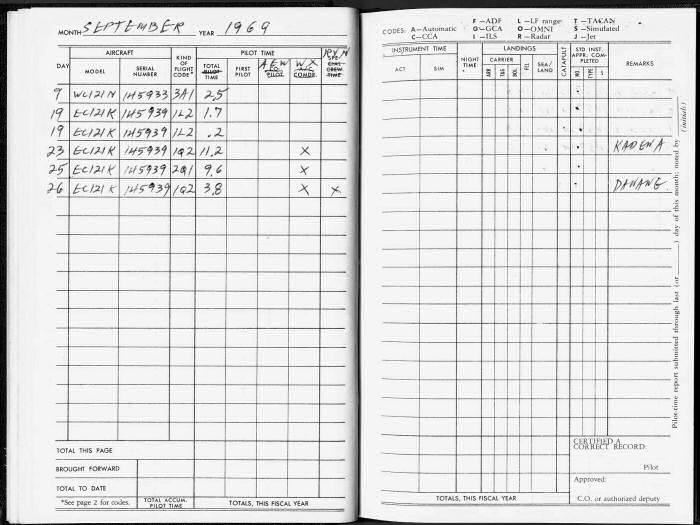 MONTH SEPTEMBER YEAR 1969
AIRCRAFT PILOT TIME
DAY MODEL SERIAL NUMBER KIND OF FLIGHT CODE* TOTAL PILOT TIME FIRST PILOT CO-PILOT A/C COMDR. SPECIAL CREW TIME
AEW WX
9 WC121N 145933 3A1 2.5
19 EC121K 145939 1L2 1.7
19 EC121K 145939 1L2 .2
23 EC121K 145939 1Q2 11.2 X
25 EC121K 145939 2Q1 9.6 X
26 EC121K 145939 1Q2 3.8 X X
TOTAL THIS PAGE
BROUGHT FORWARD
TOTAL TO DATE
*See page 2 for codes. TOTAL ACCUM. PILOT TIME TOTALS, THIS FISCAL YEAR
CODES: A—Automatic F—ADF L—LF range T—TACAN
C—CCA G—GCA O—OMNI S—Simulated
I—ILS R—Radar J—Jet
INSTRUMENT TIME NIGHT TIME * LANDINGS CATAPULT STD INST. APPR. COMPLETED REMARKS
ACT SIM CARRIER SEA/LAND NO. TYPE
ARR T&G BOL
KADENA
DANANG
CERTIFIED A CORRECT RECORD:
Pilot
Approved:
TOTALS, THIS FISCAL YEAR C.O. or authorized deputy
Pilot-time report submitted through last (or ) day of this month; noted by (initials)